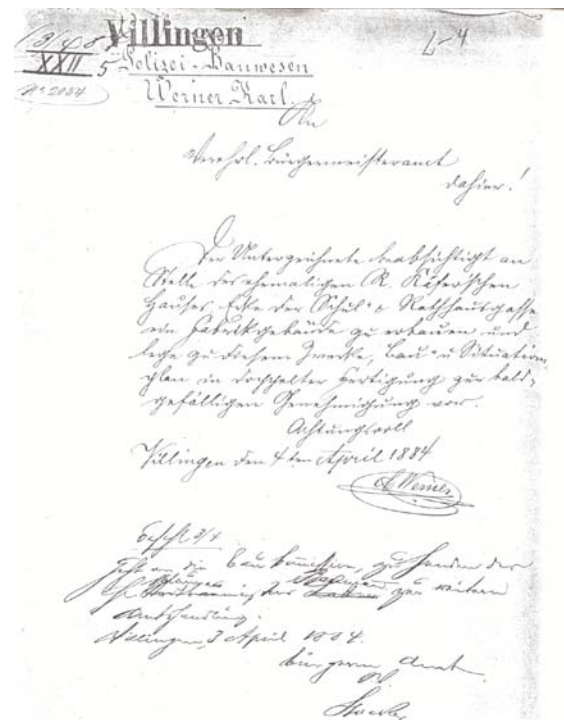 Villingen
L-4
XXII 5 Polizei-Bauwesen
No 2034 Werner Karl.
An
Verehrl. Bürgermeisteramt
dahier!
Der Unterzeichnete beabsichtigt an
Stelle des ehemaligen R. Käfer'schen
Hauses Ecke der Schul- & Rathhausgasse
ein Fabrikgebäude zu erbauen und
lege zu diesem Zwecke, Bau- u Situations
plan in doppelter Fertigung zur bald-
gefälligen Genehmigung vor.
Achtungsvoll
Villingen den 4ten April 1884
Werner
Geht an die Baukommission, zu Handen des
zur weitern
Amtshandlung.
Villingen, 3 April 1884.
Bürgerm. Amt